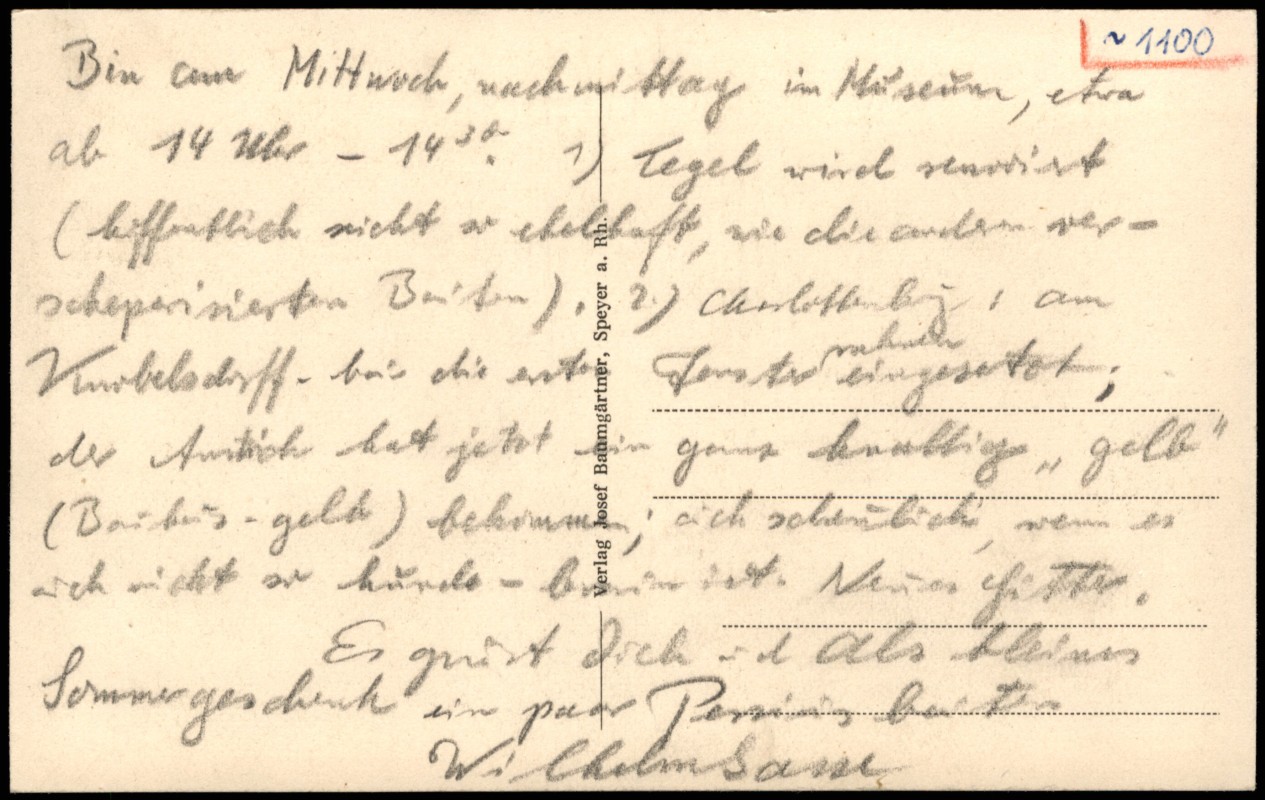 ~ 1100
Bin am Mittwoch, nachmittag im Museum, etwa
ab 14 Uhr – 14³⁰. 1) Tegel wird renoviert
(hoffentlich nicht so ekelhaft, wie die andern ver-
scheperisierten Bauten). 2.) Charlottenburg: am
Knobelsdorff-bau die ersten Fensterrahmen eingesetzt;
der Anstrich hat jetzt ein ganz knallig „gelb"
(Bauhaus-gelb) bekommen; auch scheußlich, wenn es
auch nicht so hunde-braun ist. Neues Gitter.
Es grüsst Dich und als kleines
Sommergeschenk ein paar
Wilhelm Sasse
Verlag Josef Baumgärtner, Speyer a. Rh.